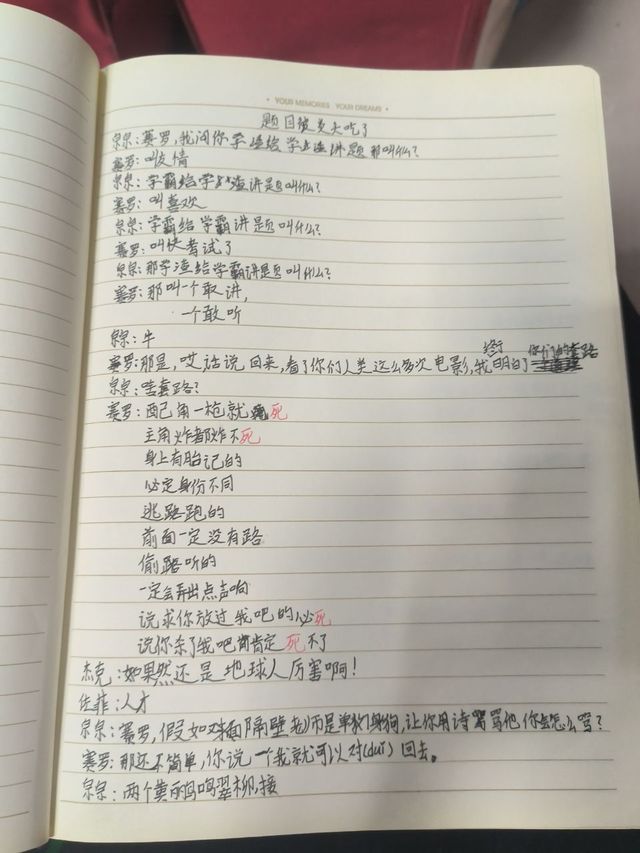 • YOUR MEMORIES YOUR DREAMS •
题目被炎火吃了
泉泉:赛罗,我问你学渣给学渣讲题那叫什么?
赛罗:叫友情
泉泉:学霸给学渣讲题叫什么?
赛罗:叫喜欢
泉泉:学霸给学霸讲题叫什么?
赛罗:叫快考试了
泉泉:那学渣给学霸讲题叫什么?
赛罗:那叫一个敢讲,
一个敢听
泉泉:牛
赛罗:那是,哎话说回来,看了你们人类这么多次电影,我终于明白了你们的套路
泉泉:啥套路?
赛罗:配角一枪就死
主角炸都炸不死
身上有胎记的
必定身份不同
逃路跑的
前面一定没有路
偷听的
一定会弄出点声响
说求你放过我吧的必死
说你杀了我吧肯定死不了
杰克:如果然还是地球人厉害啊!
佐菲:人才
泉泉:赛罗,假如对面隔壁老师是单身狗,让你用诗骂他你会怎么骂?
赛罗:那还不简单,你说一个我就可以对(duǐ)回去。
泉泉:两个黄丽鸣翠柳,接